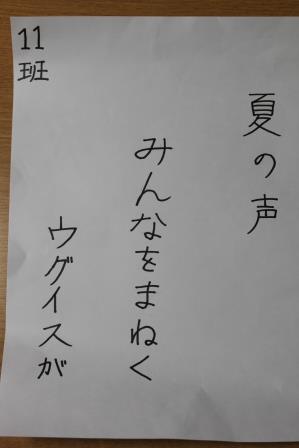 夏の声
みんなをまねく
ウグイスが
11
班